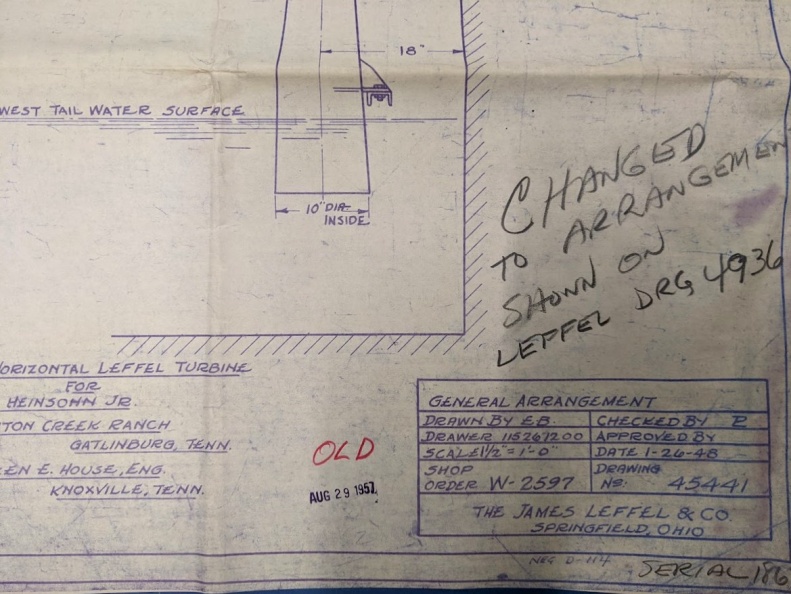 18"
WEST TAIL WATER SURFACE
10" DIA.
INSIDE
CHANGED
TO ARRANGEMEN
SHOWN ON
LEFFEL DRG 4936
ORIZONTAL LEFFEL TURBINE
FOR
HEINSOHN JR.
TON CREEK RANCH
GATLINBURG, TENN.
EN E. HOUSE, ENG.
KNOXVILLE, TENN.
OLD
AUG 29 1957
GENERAL ARRANGEMENT
DRAWN BY E.B. CHECKED BY
DRAWER 115267200 APPROVED BY
SCALE 1½" = 1'-0" DATE 1-26-48
SHOP ORDER W-2597 DRAWING NO. 45441
THE JAMES LEFFEL & CO.
SPRINGFIELD, OHIO
NEG D-114
SERIAL 186